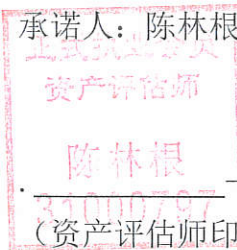 承诺人：陈林根
资产评估师
陈林根
31000797
（资产评估师印